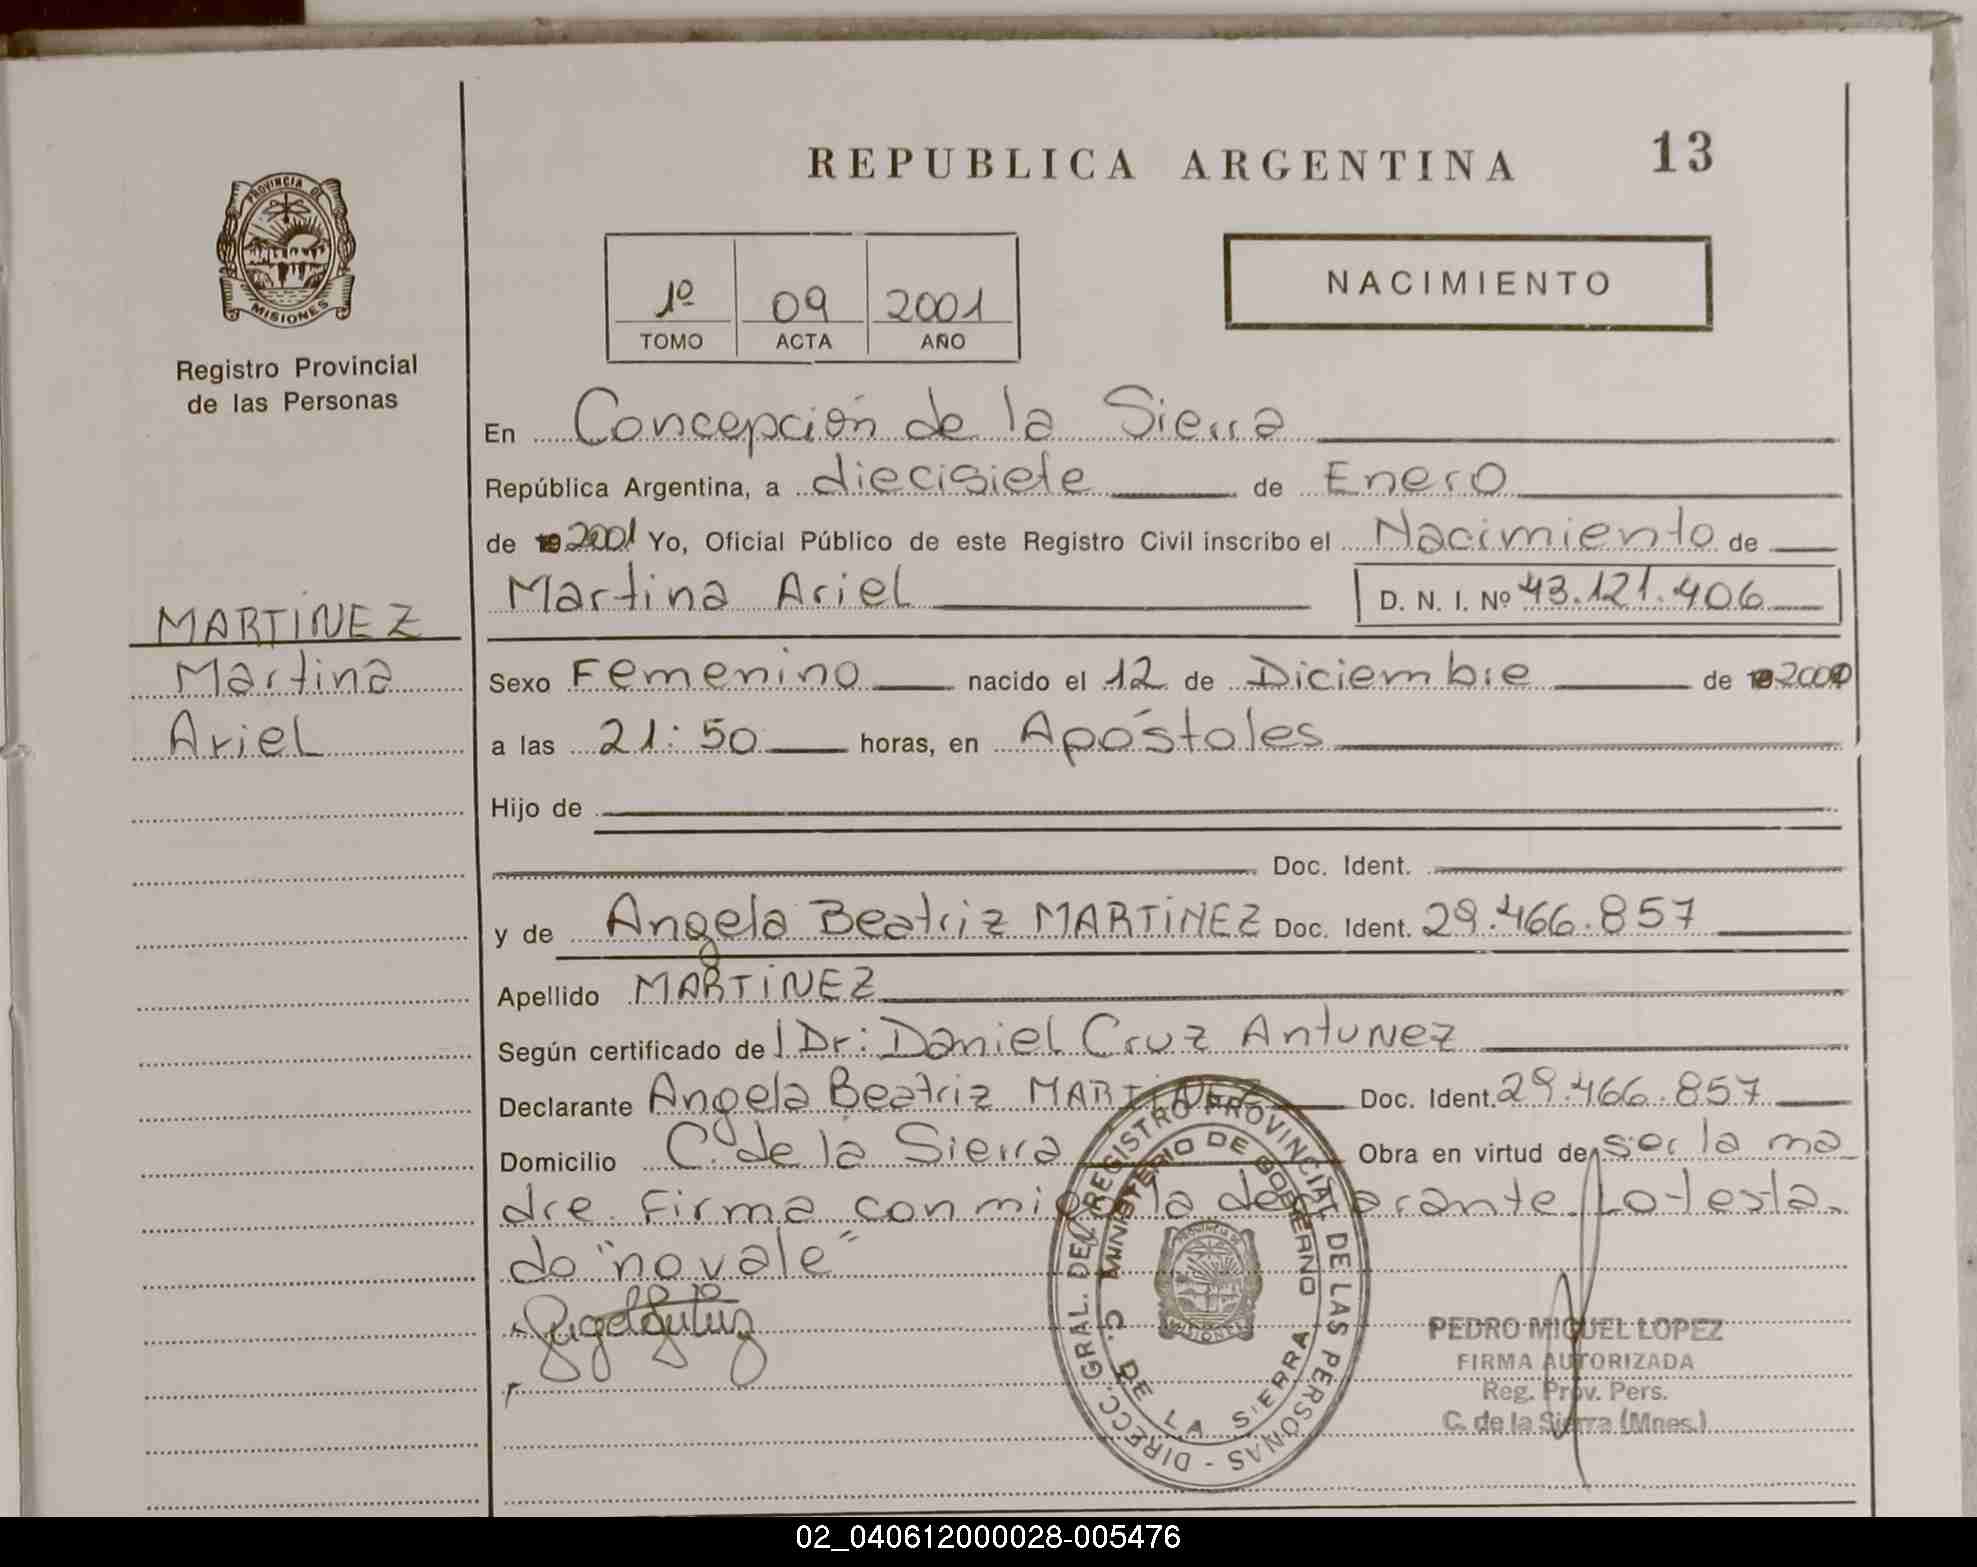 REPUBLICA ARGENTINA 13
PROVINCIA DE
MISIONES
Registro Provincial
de las Personas
1º 09 2001
TOMO ACTA AÑO
NACIMIENTO
En Concepción de la Sierra
República Argentina, a diecisiete de Enero
de 2001 Yo, Oficial Público de este Registro Civil inscribo el Nacimiento de
Martina Ariel D. N. I. Nº 43.121.406
MARTINEZ
Martina
Ariel
Sexo Femenino nacido el 12 de Diciembre de 2000
a las 21:50 horas, en Apóstoles
Hijo de
Doc. Ident.
y de Angela Beatriz MARTINEZ Doc. Ident. 29.466.857
Apellido MARTINEZ
Según certificado de Dr: Daniel Cruz Antunez
Declarante Angela Beatriz MARTINEZ Doc. Ident. 29.466.857
Domicilio C. de la Sierra Obra en virtud de ser la ma
dre. Firma conmigo la declarante. Lo testa
do "no vale"
DIRECC. GRAL. DEL REGISTRO PROVINCIAL DE LAS PERSONAS -
MINISTERIO DE GOBIERNO
C. DE LA SIERRA
PROVINCIA DE
MISIONES
PEDRO MIGUEL LOPEZ
FIRMA AUTORIZADA
Reg. Prov. Pers.
C. de la Sierra (Mnes.)
02_040612000028-005476